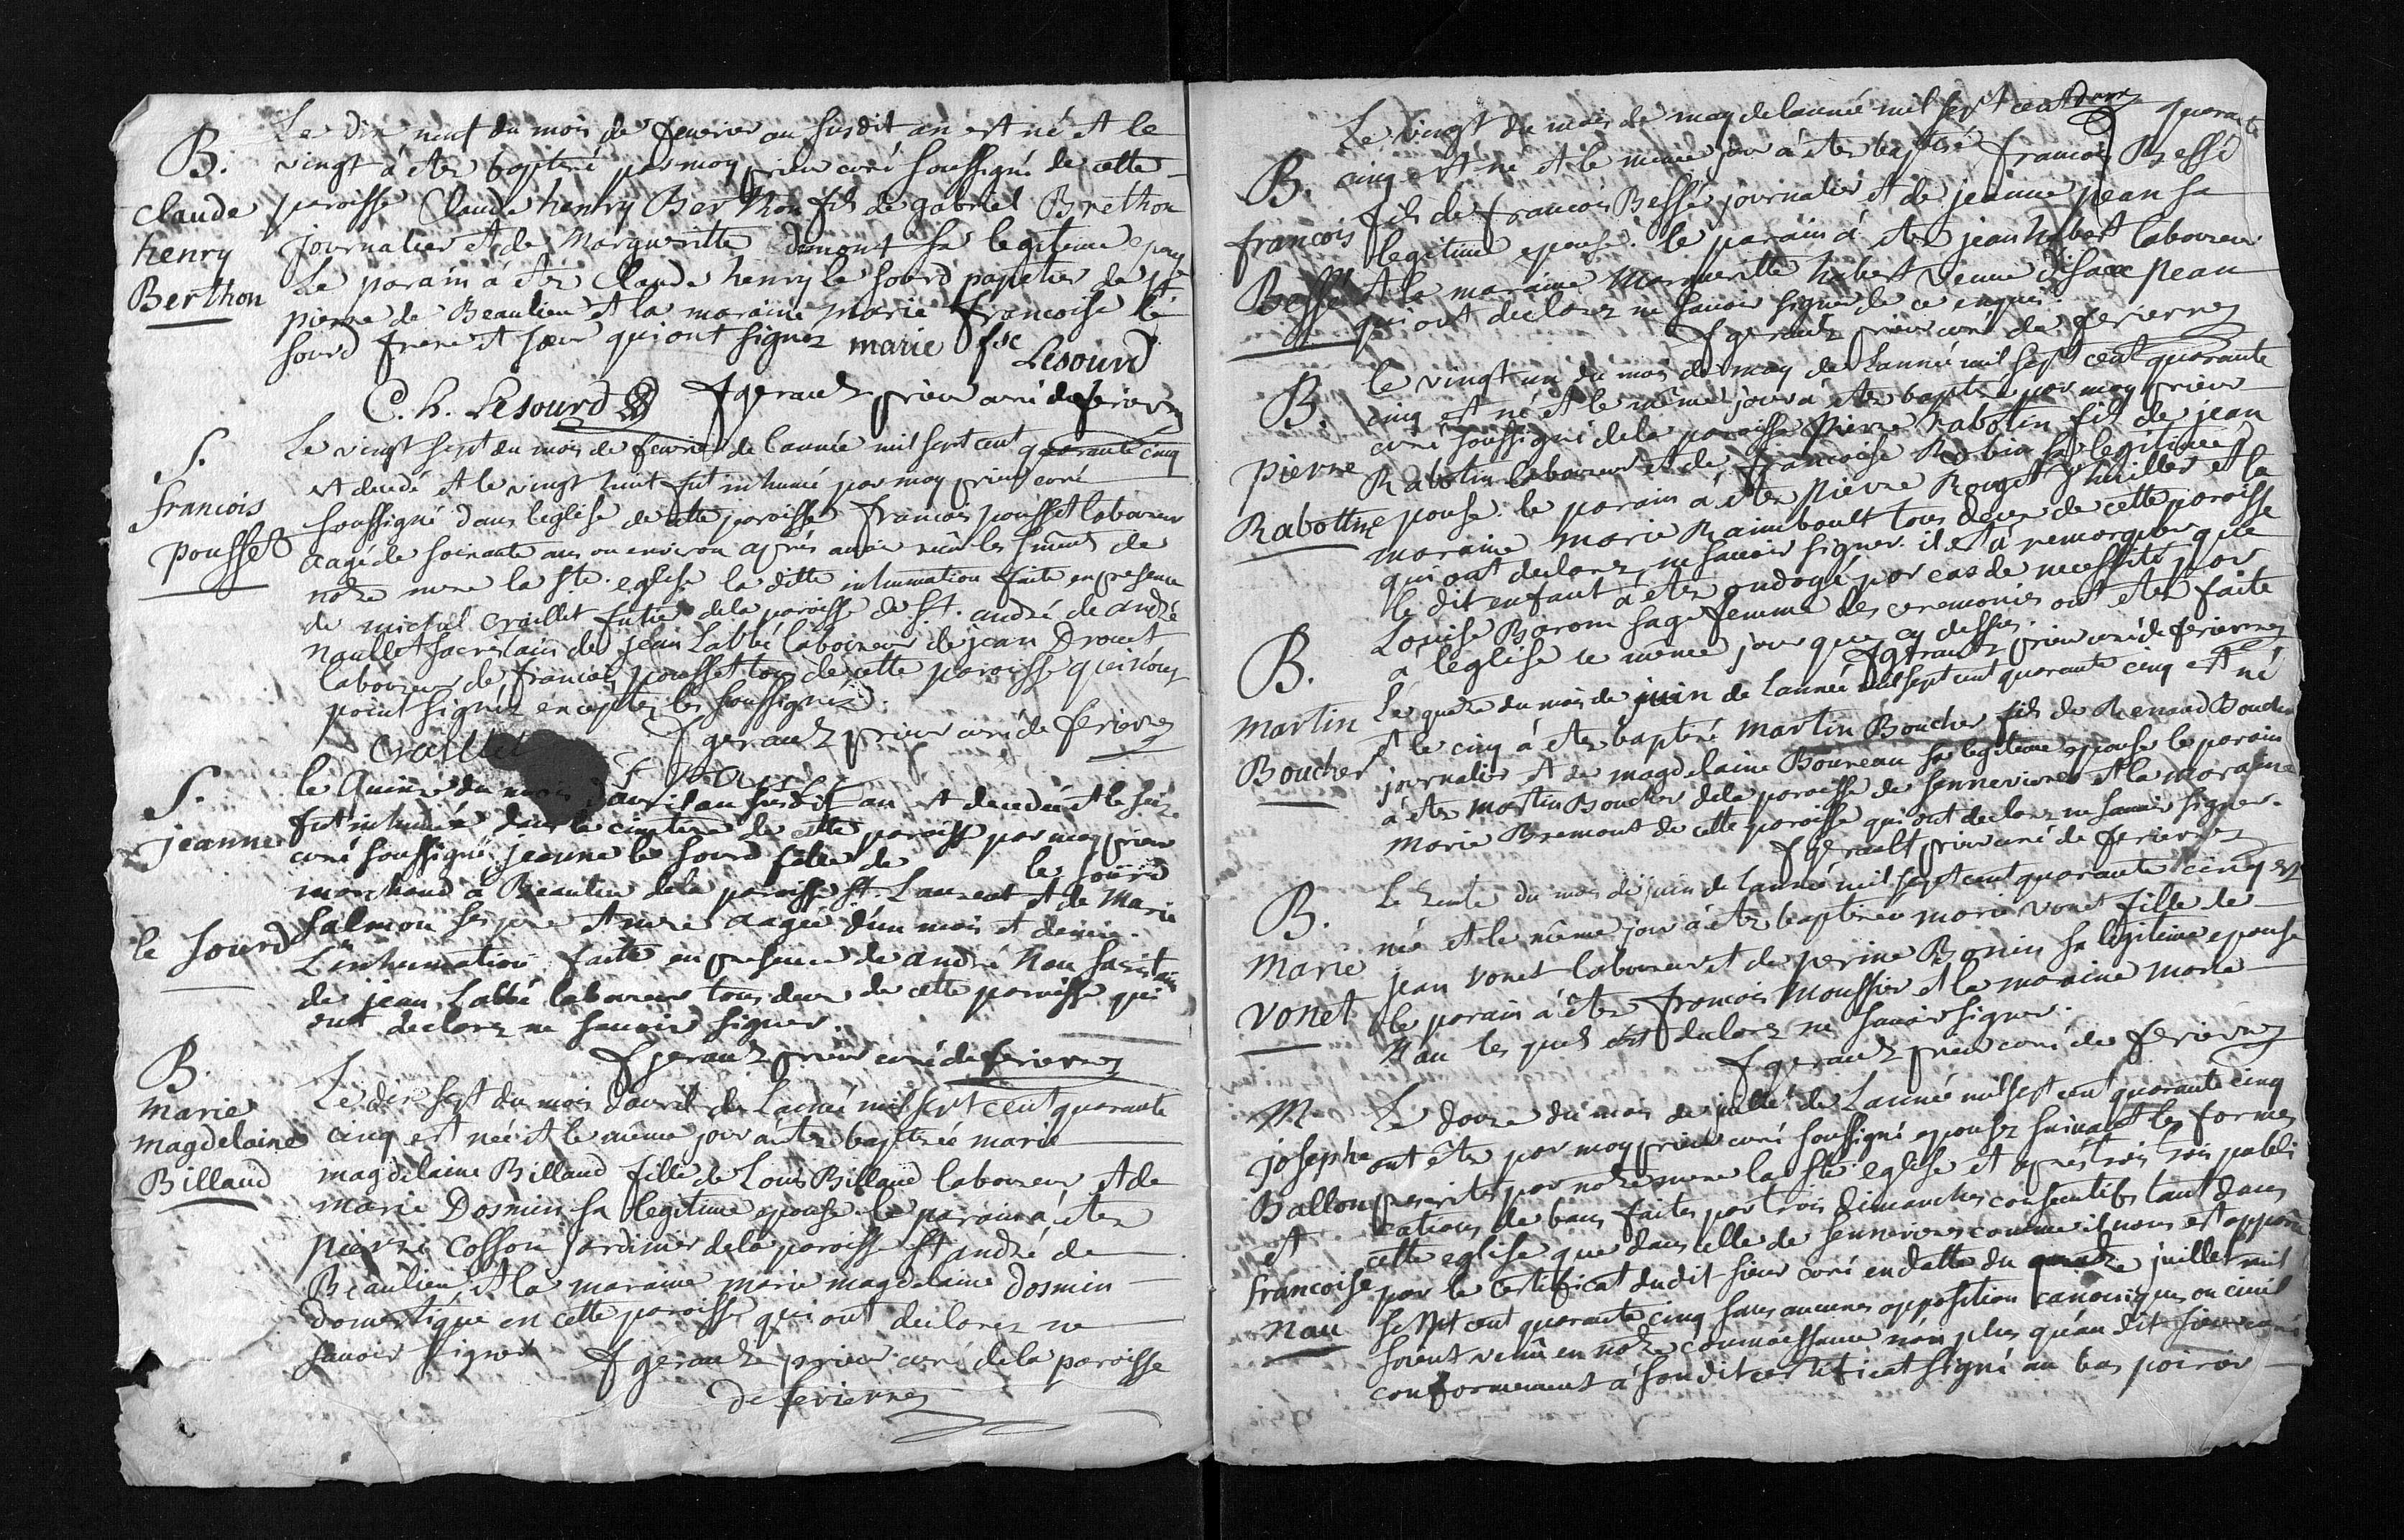 B.
Claude
henry
Berthon
Le dix neuf du mois de fevrier au susdit an est né et le
vingt à étez baptisé par moy prieur curé soussigné de cette
paroisse Claude henry Berthon fils de gabriel Brethon
journalier et de Margueritte dumont sa legitime epouse
Le parain à étéz Claude henry le sourd papetier de St
pierre de Beaulieu et la maraine Marie francoise le
sourd frere et sœur qui ont signez marie fse
Lesourd
C. h. Lesourd fgerault prieur curé de ferierre
S.
francois
pousset
Le vingt sept du mois de fevrier de l'année mil sept cent quarante cinq
est decedé et le vingt huit fut inhumé par moy prieur curé
soussigné dans l'eglise de cette paroisse francois pousset laboureur
aagé de soixante ans ou environ aprés avoir recû les sments de
notre mere la ste. eglise la ditte inhumation faite en presence
de michel craillet futie de la paroisse de st. andré de andré
naullet sacristain de jean Labbé laboureur de jean Drouet
laboureur de francois pousset tous de cette paroisse qui n'ont
point signéz exceptez les soussignez.
craillet fgerault prieur curé de ferierre
f pousset
S.
jeanne
le sourd
le quinze du mois d'avril au susdit an est decedée et le seize
fut inhumée dans le cimetiere de cette paroisse par moy prieur
curé soussigné jeanne le sourd fille de le sourd
marchand à Beaulieu de la paroisse St. Laurent et de Marie
salmon ses pere et mere aagée d'un mois et demie.
L'inhumation faite en presence de andré Nau sacristain
de jean Labbé laboureur tous deux de cette paroisse qui
ont declarez ne sçavoir signer.
fgerault prieur curé de ferierre
B.
Marie
magdelaine
Billaud
Le dix sept du mois d'avril de L'année mil sept cent quarante
cinq est née et le même jour à étez baptisée marie
magdelaine Billaud fille de Louis Billaud laboureur et de
marie Dosmin sa legitime epouse le parain à étez
pierre Cosson jardinier de la paroisse St andré de
Beaulieu et la maraine marie magdelaine Dosmin
domestique en cette paroisse qui ont declarez ne
savoir signer fgerault prieur curé de la paroisse
de ferierre
B.
francois
Bessé
Le vingt du mois de may de l'année mil sept cent quarante
cinq est né et le même jour à étez baptisé francois Bessé
fils de francois Bessé journalier et de jeanne jean sa
legitime epouse. le parain à étez jean habert laboureur
et la maraine Margueritte habert veuve d'isaac jean
qui ont declarez ne savoir signer de ce enquis.
fgerault prieur curé de ferierre
B.
pierre
Rabottin
le vingt un du mois de may de L'année mil sept cent quarante
cinq est né et le même jour à étez baptisé par moy prieur
curé soussigné de la paroisse Pierre Rabotin fils de jean
Rabotin laboureur et de francoise Robin sa legitime
epouse. le parain à étez Pierre Rouget huillier et la
maraine marie Raimboult tous deux de cette paroisse
qui ont declarez ne savoir signer. il est à remarquer que
le dit enfant à étéz ondoyé par cas de necessité par
Louise Barom sage femme les ceremonies ont étéz faite
a l'eglise le même jour que cy dessus.
fgerault prieur curé de ferierre
B.
martin
Boucher
Le quatre du mois de juin de L'année mil sept cent quarante cinq est né
et le cinq à étez baptisé martin Boucher fils de Renaud Boucher
journalier et de magdelaine Boureau sa legitime epouse le parain
à étéz martin Boucher de la paroisse de sennevieres et la maraine
Marie Bremont de cette paroisse qui ont declarez ne savoir signer.
fgerault prieur curé de ferierre
B.
Marie
vonet
Le trente du mois de juin de L'année mil sept cent quarante cinq est
née et le même jour à étéz baptisée marie vonet fille de
jean vonet laboureur et de perine Bonin sa legitime epouse
le parain à étéz francois Moussier et la maraine Marie
Nau les quels ont declarez ne savoir signer.
fgerault prieur curé de ferierre
M
josephe
Ballon
et
francoise
nau
Le douze du mois de juillet de L'année mil sept cent quarante cinq
ont étéz par moy prieur curé soussigné epousez suivant les formes
prescrites par notre mere la ste. eglise et aprés trois publi
cations de bans faites par trois dimanches consecutifs tant dans
cette eglise que dans celle de sennevieres comme il nous est apparu
par le certificat du dit sieur curé en datte du quatre juillet mil
sept cent quarante cinq sans aucunes opposition canoniques ou civil
soient venû en notre connoissance non plus qu'au dit sieur curé
conformement à son dit certificat signé au bas poirier